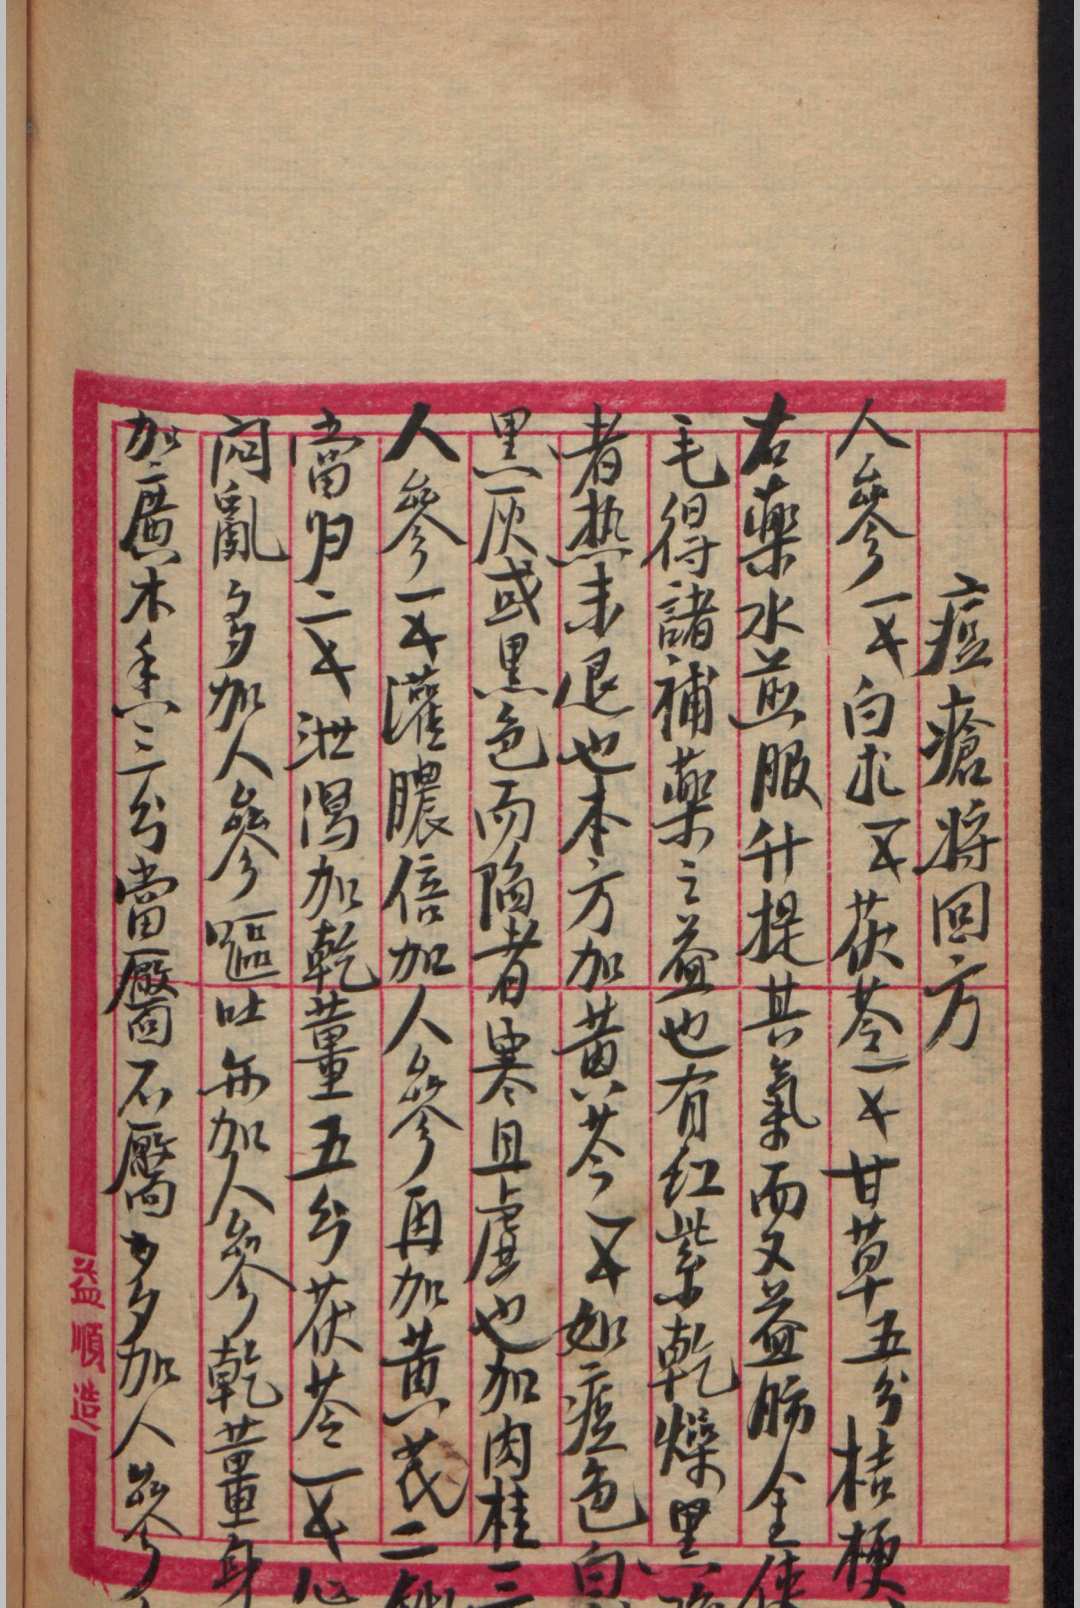 痘瘡將回方
人參一戈白朮一戈茯苓一戈甘草五分桔梗
右藥水煎服升提其氣而又益肺金使
毛得諸補藥之益也有紅紫乾燥黑陷
者热未退也本方加黄芩一戈如痘色白
黑灰或黑色而陷者寒且虛也加肉桂三
人參一戈灌膿倍加人參再加黄芪二
當归二戈泄瀉加乾薑五分茯苓一戈心
闷亂多加人參嘔吐亦加人參乾薑身
加廣木香三分當靨不靨多加人參
益順造